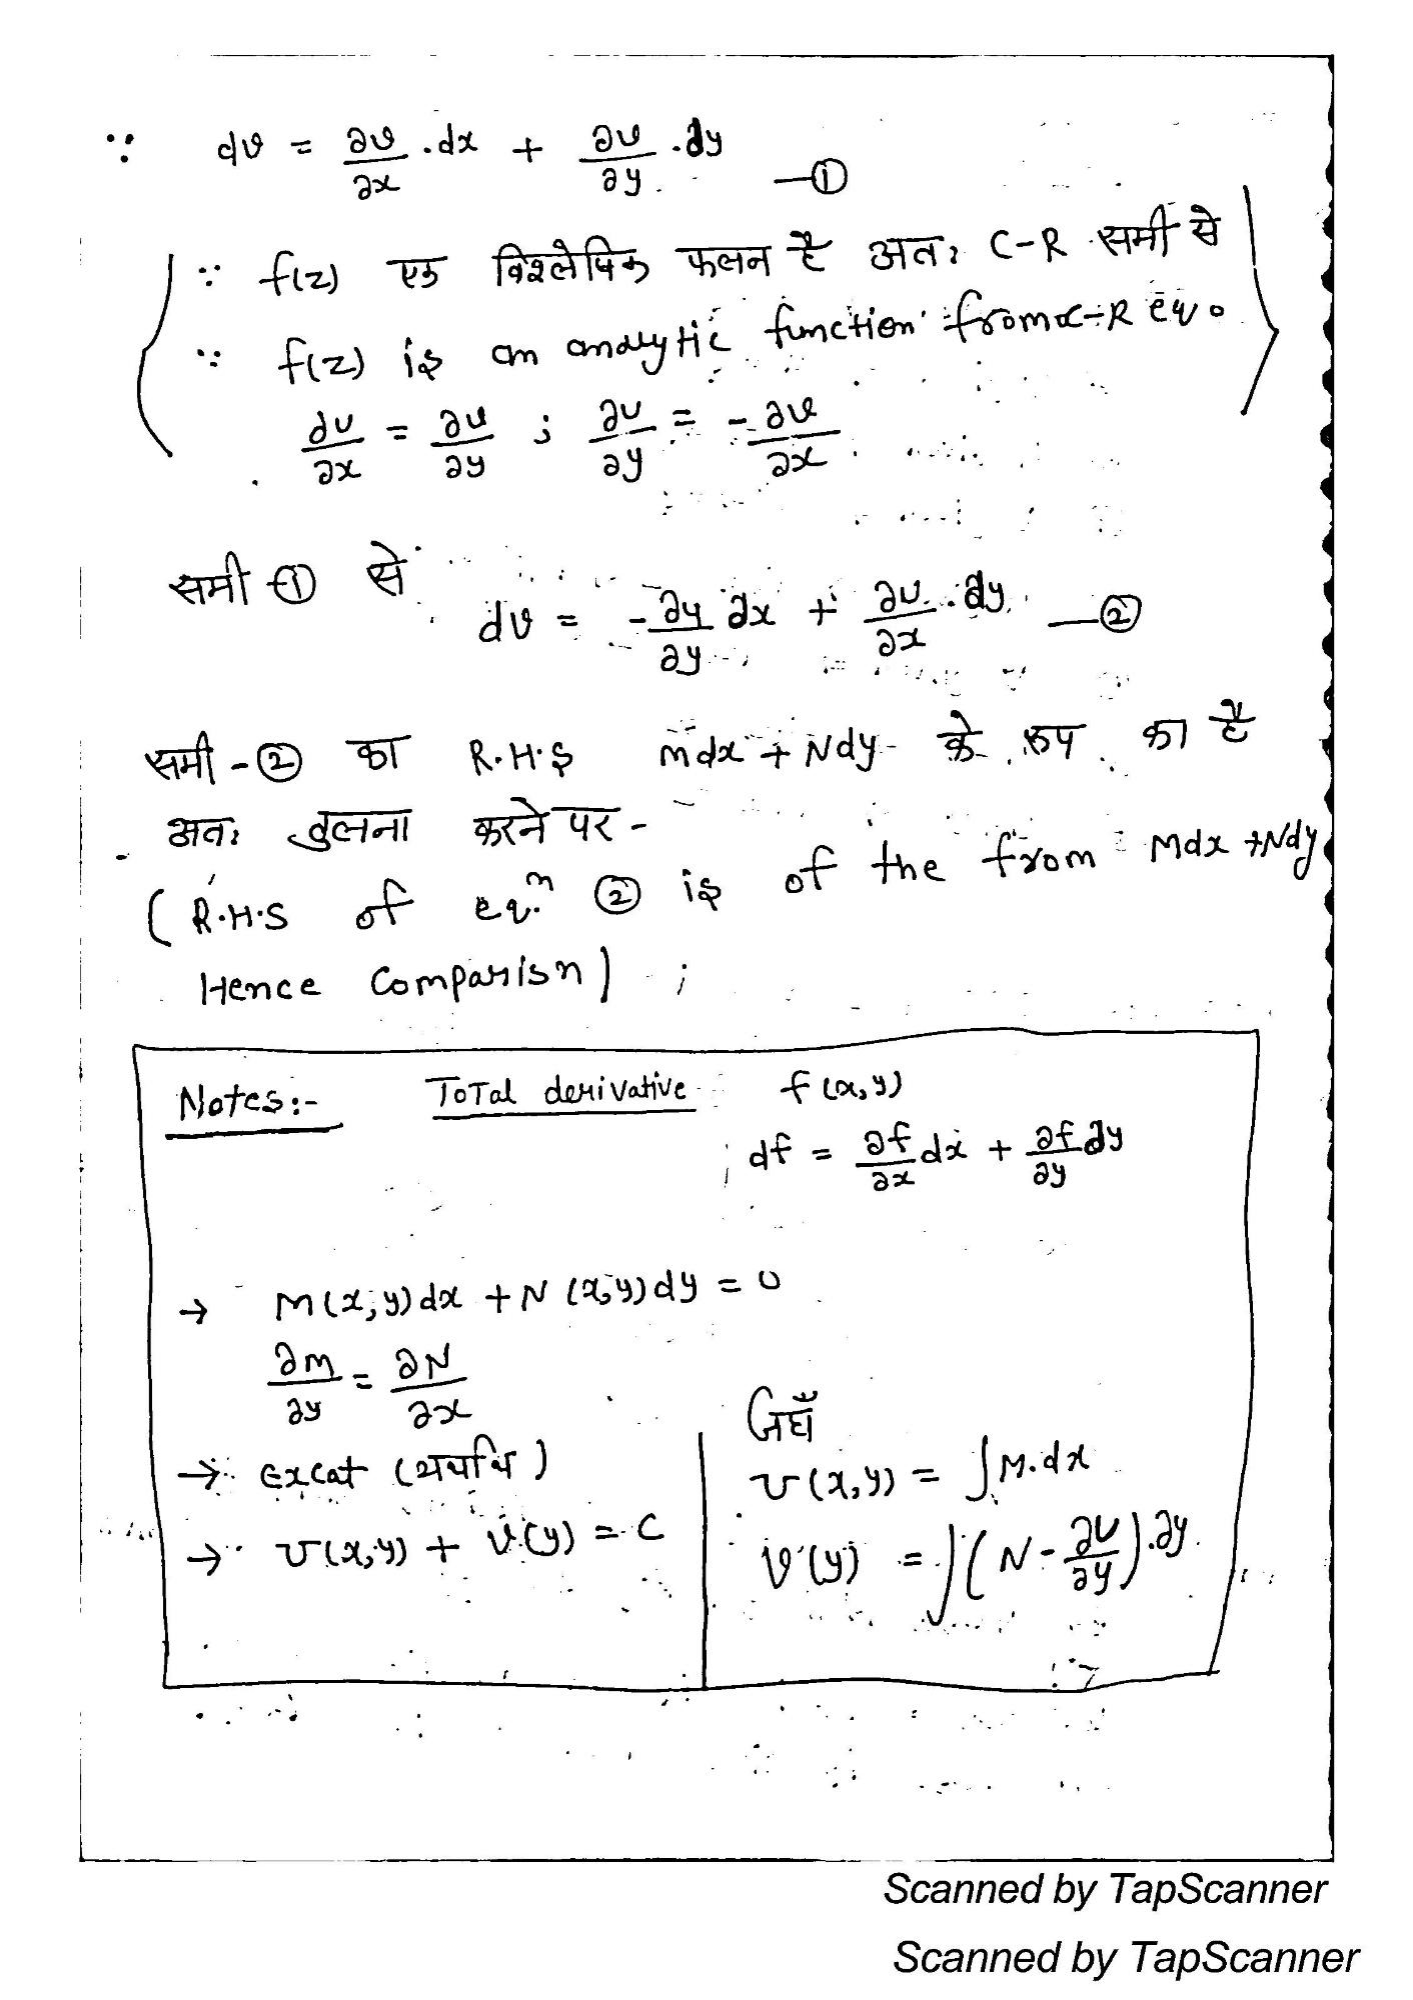 ∵ dv = ∂v/∂x .dx + ∂v/∂y .dy —①
∵ f(z) एक विश्लेषिक फलन है अतः C-R समी से
∵ f(z) is an analytic function from C-R eq.
∂u/∂x = ∂v/∂y ; ∂u/∂y = -∂v/∂x
समी ① से
dv = -∂u/∂y dx + ∂u/∂x .dy —②
समी-② का R.H.S Mdx + Ndy के रूप का है
अतः तुलना करने पर -
(R.H.S of eq.ⁿ ② is of the from Mdx + Ndy
Hence Comparisn) ;
Notes:- Total derivative f(x,y)
df = ∂f/∂x dx + ∂f/∂y dy
→ M(x,y)dx + N(x,y)dy = 0
∂M/∂y = ∂N/∂x
→ Excat (यथार्थ)
→ U(x,y) + V(y) = C
जहाँ
U(x,y) = ∫M.dx
V(y) = ∫(N - ∂U/∂y).∂y
Scanned by TapScanner
Scanned by TapScanner